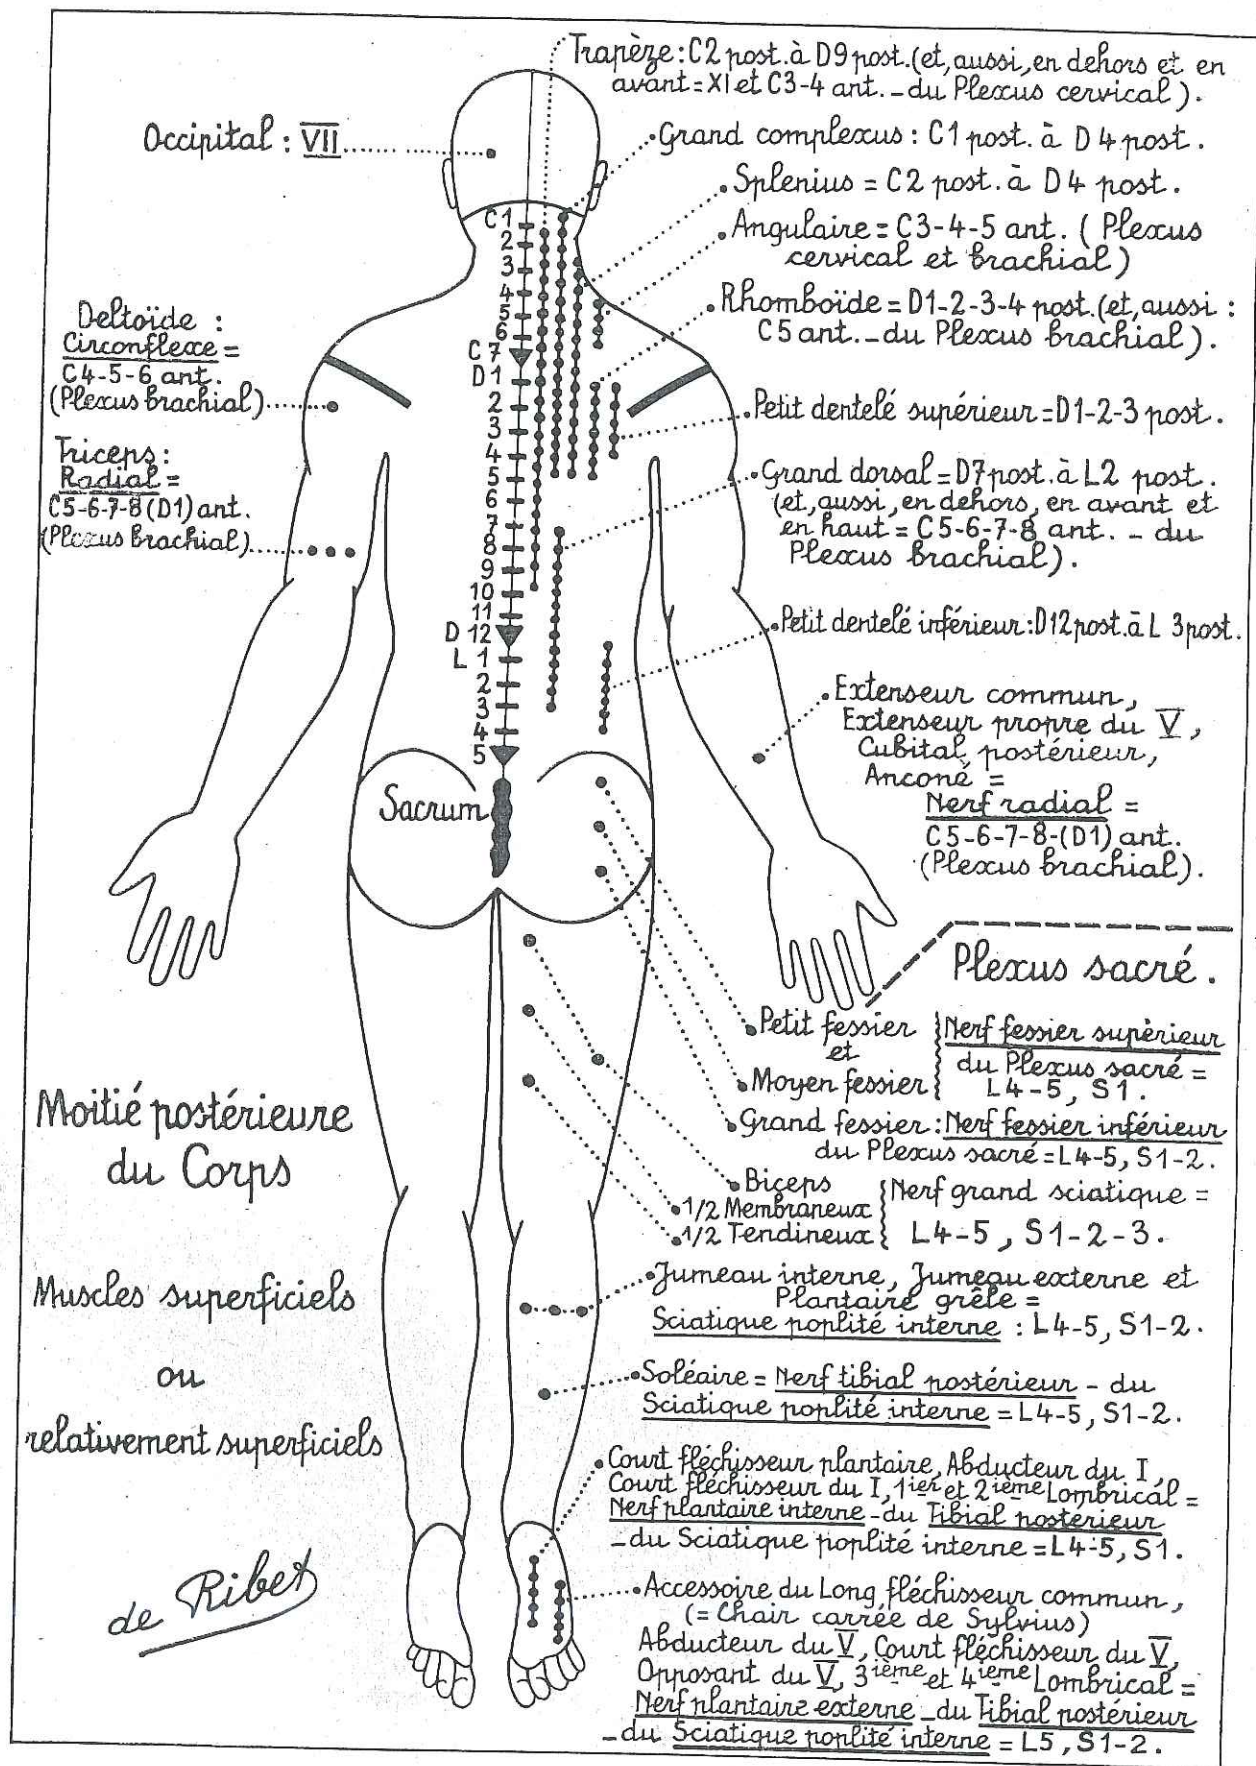 Trapèze : C2 post. à D9 post. (et, aussi, en dehors et en
avant = XI et C3-4 ant. _ du Plexus cervical).
Occipital : VII
Grand complexus : C1 post. à D4 post.
Splenius = C2 post. à D4 post.
Angulaire = C3-4-5 ant. (Plexus
cervical et brachial)
Rhomboïde = D1-2-3-4 post. (et, aussi :
C5 ant. _ du Plexus brachial).
Deltoïde :
Circonflexe =
C4-5-6 ant.
(Plexus brachial)
Petit dentelé supérieur = D1-2-3 post.
Triceps :
Radial =
C5-6-7-8 (D1) ant.
(Plexus brachial)
Grand dorsal = D7 post. à L2 post.
(et, aussi, en dehors, en avant et
en haut = C5-6-7-8 ant. _ du
Plexus brachial).
Petit dentelé inférieur : D12 post. à L3 post.
C1
2
3
4
5
6
C7
D1
2
3
4
5
6
7
8
9
10
11
D 12
L 1
2
3
4
5
Sacrum
Extenseur commun,
Extenseur propre du V,
Cubital postérieur,
Anconé =
Nerf radial =
C5-6-7-8-(D1) ant.
(Plexus brachial).
Plexus sacré.
Petit fessier
et
Moyen fessier
Nerf fessier supérieur
du Plexus sacré =
L4-5, S1.
Grand fessier : Nerf fessier inférieur
du Plexus sacré = L4-5, S1-2.
Biceps
1/2 Membraneux
1/2 Tendineux
Nerf grand sciatique =
L4-5, S1-2-3.
Jumeau interne, Jumeau externe et
Plantaire grêle =
Sciatique poplité interne : L4-5, S1-2.
Soléaire = Nerf tibial postérieur - du
Sciatique poplité interne = L4-5, S1-2.
Court fléchisseur plantaire, Abducteur du I,
Court fléchisseur du I, 1ier et 2ième Lombrical =
Nerf plantaire interne _ du Tibial postérieur
_ du Sciatique poplité interne = L4-5, S1.
Accessoire du Long fléchisseur commun,
(= Chair carrée de Sylvius)
Abducteur du V, Court fléchisseur du V,
Opposant du V, 3ième et 4ième Lombrical =
Nerf plantaire externe _ du Tibial postérieur
_ du Sciatique poplité interne = L5, S1-2.
Moitié postérieure
du Corps
Muscles superficiels
ou
relativement superficiels
de Ribet